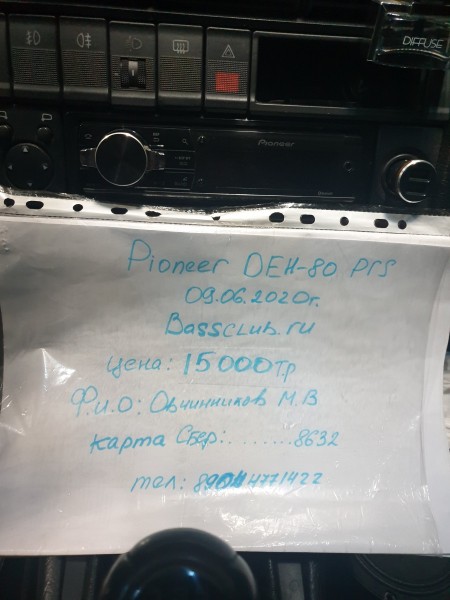 DIFFUSE
P
Pioneer
Pioneer DEH-80 PrS
09.06.2020г.
Bassclub.ru
Цена: 15000т.р
Ф.и.о: Овчинников М.В
карта Сбер:........8632
тел: 89044771422